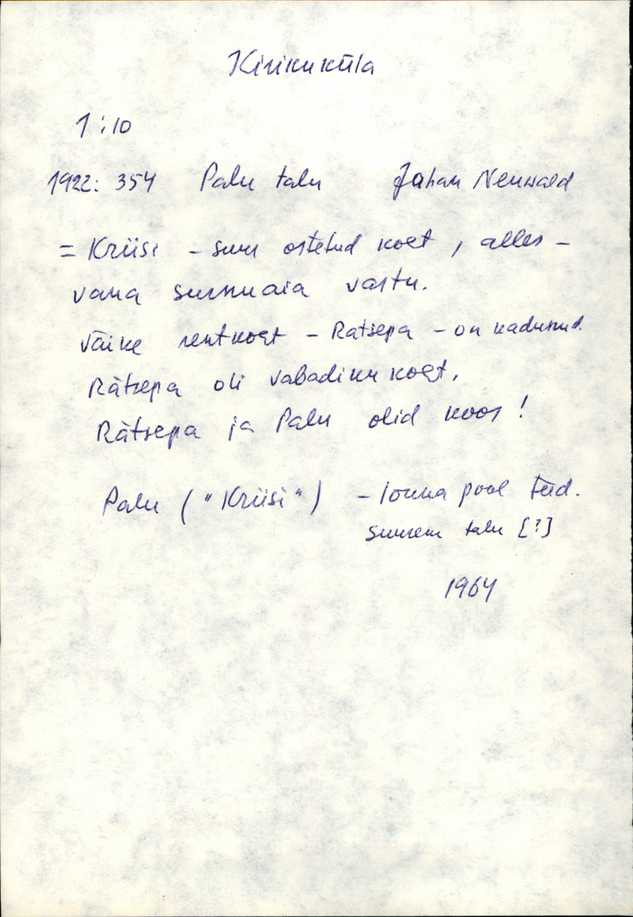 Kirikuküla
1:10
1922: 354 Palu talu Juhan Neuwald
= Kriisi - suur ostetud koht, alles -
vana surnuaia vastu.
Väike rentkoht - Rätsepa - on kadunud.
Rätsepa oli vabadiku koht.
Rätsepa ja Palu olid koos!
Palu ("Kriisi") - lõuna pool teed.
suurem talu [?]
1964